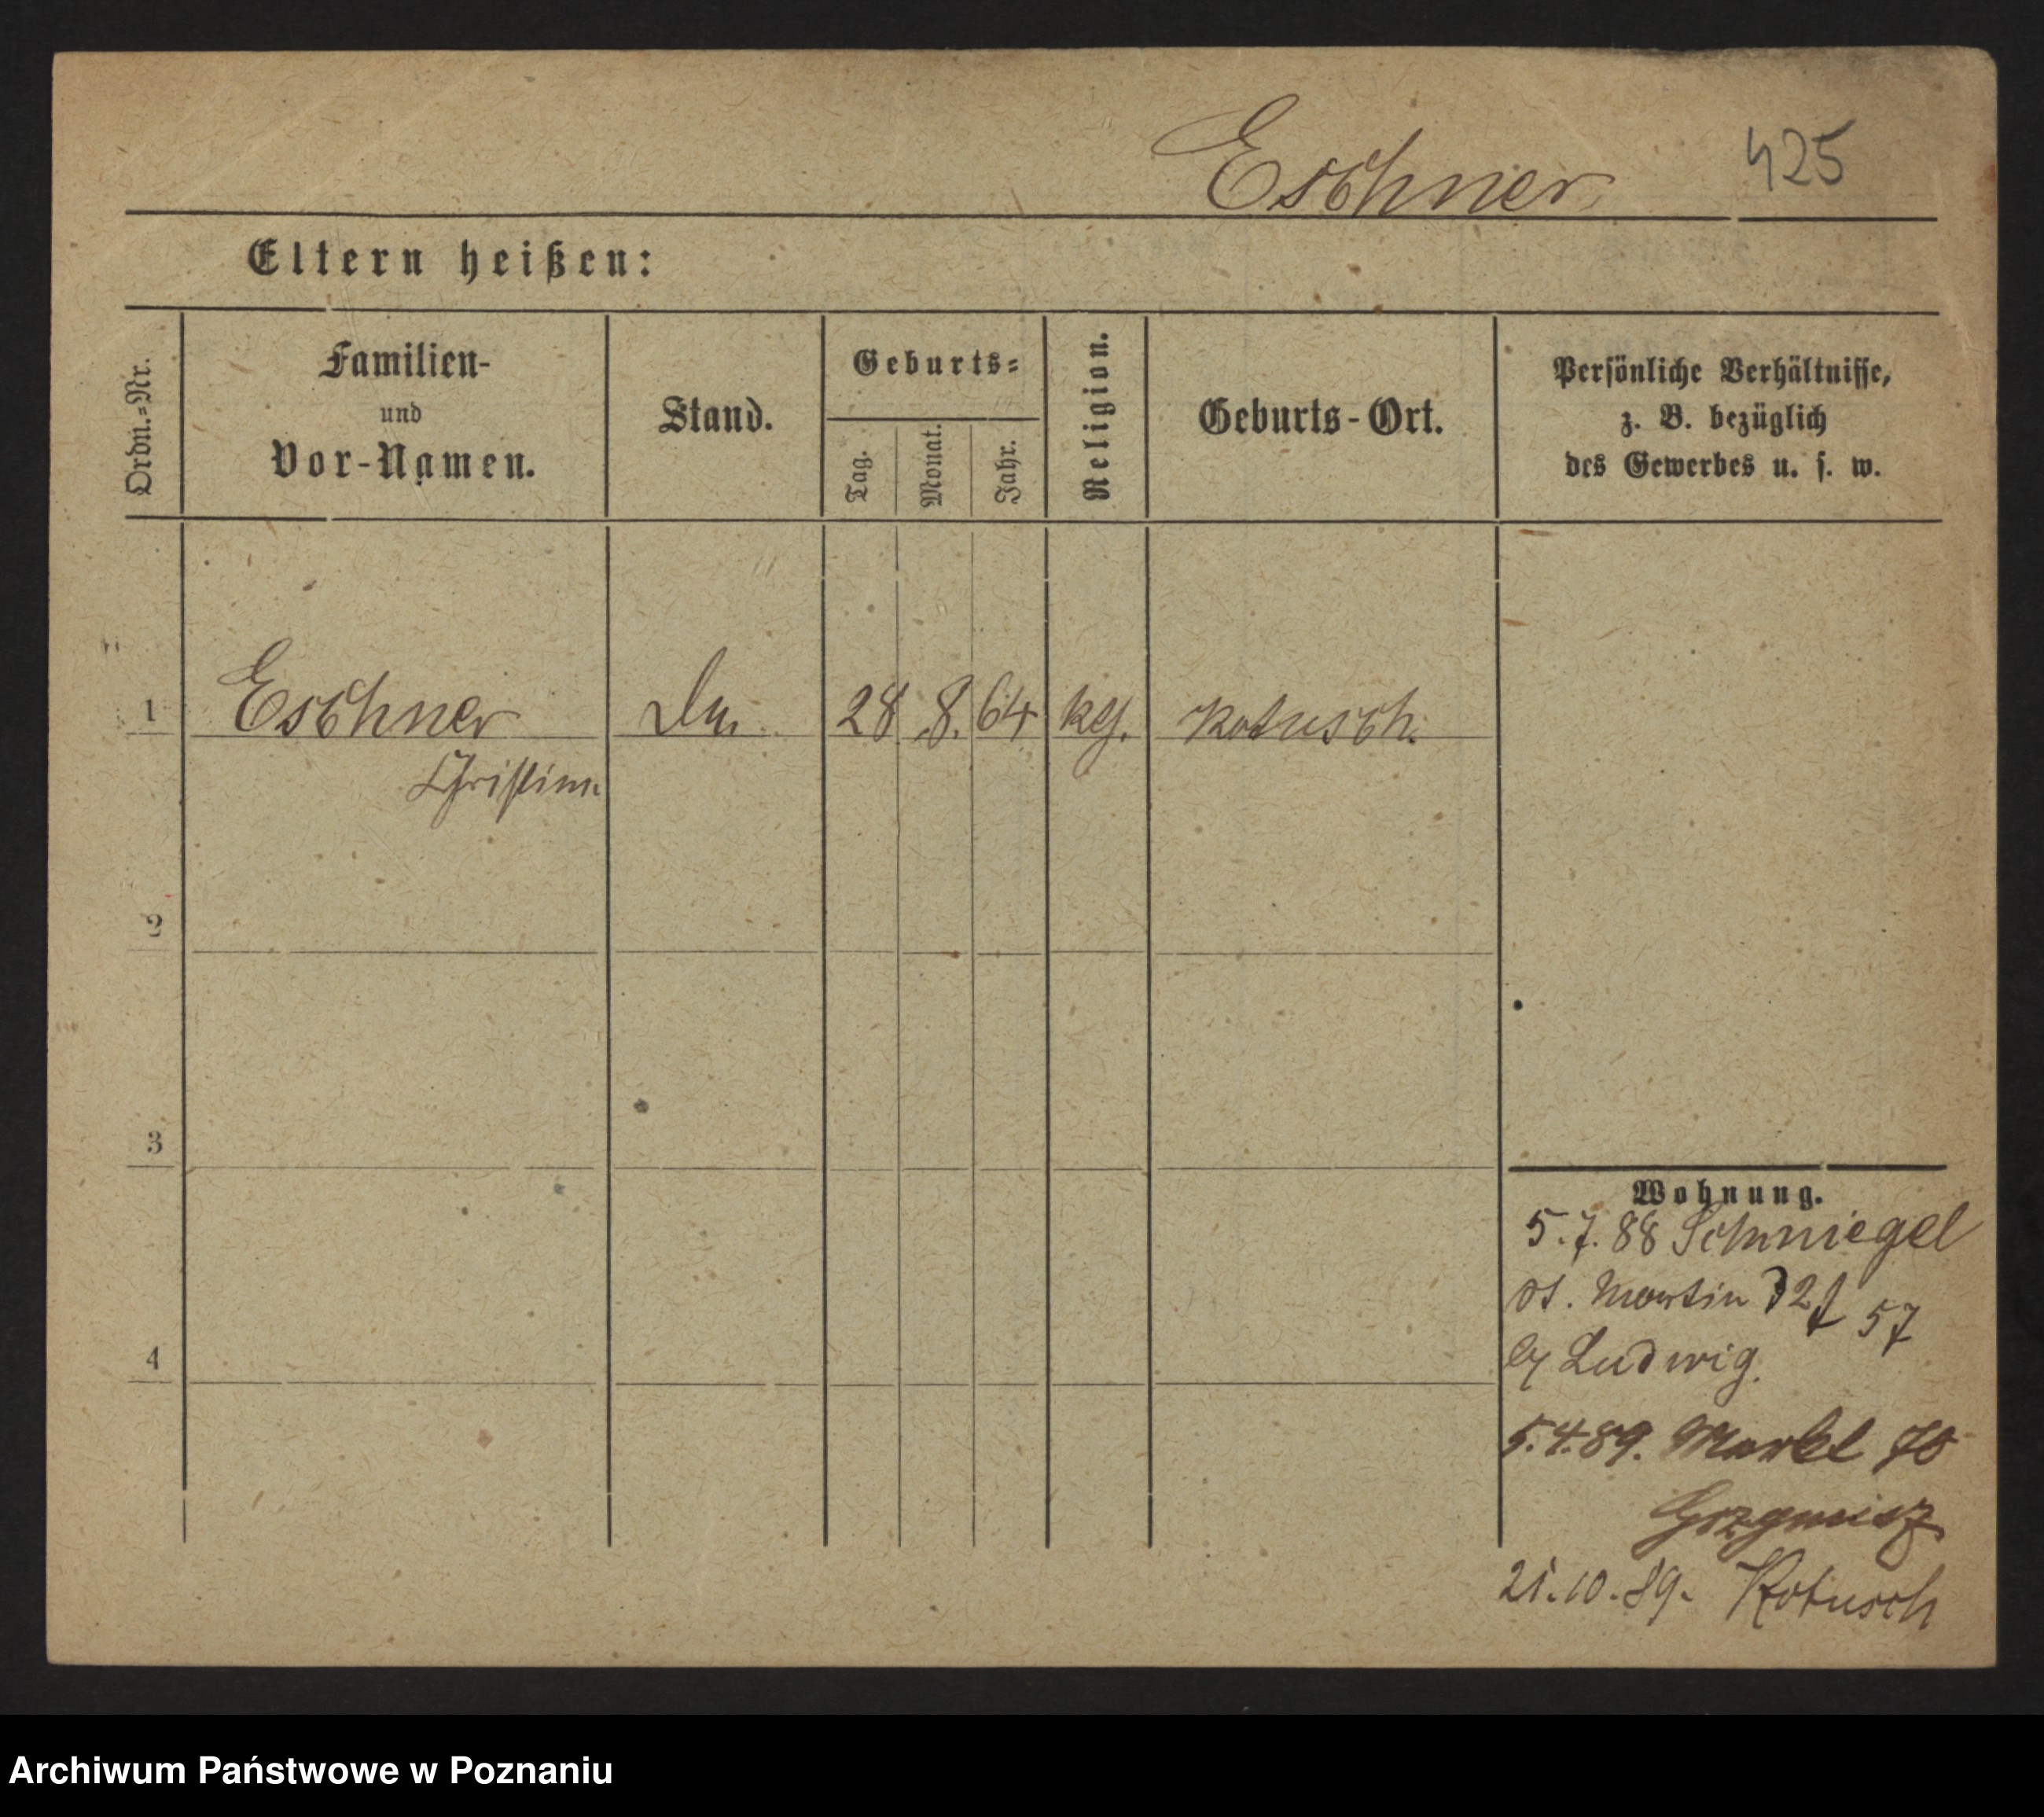 Eschner 425
Eltern heißen:
Ordn.=Nr.
Familien-
und
Vor-Namen.
Stand.
Geburts=
Tag.
Monat.
Jahr.
Religion.
Geburts-Ort.
Persönliche Verhältnisse,
z. B. bezüglich
des Gewerbes u. s. w.
1 Eschner 28 8. 64 kg. Kotusch.
Christine
2
3
4
Wohnung.
5.7.88 Schmiegel
St. Martin 57
by Ludwig.
5.4.89. Markt
21.10.89. Kotusch
Archiwum Państwowe w Poznaniu